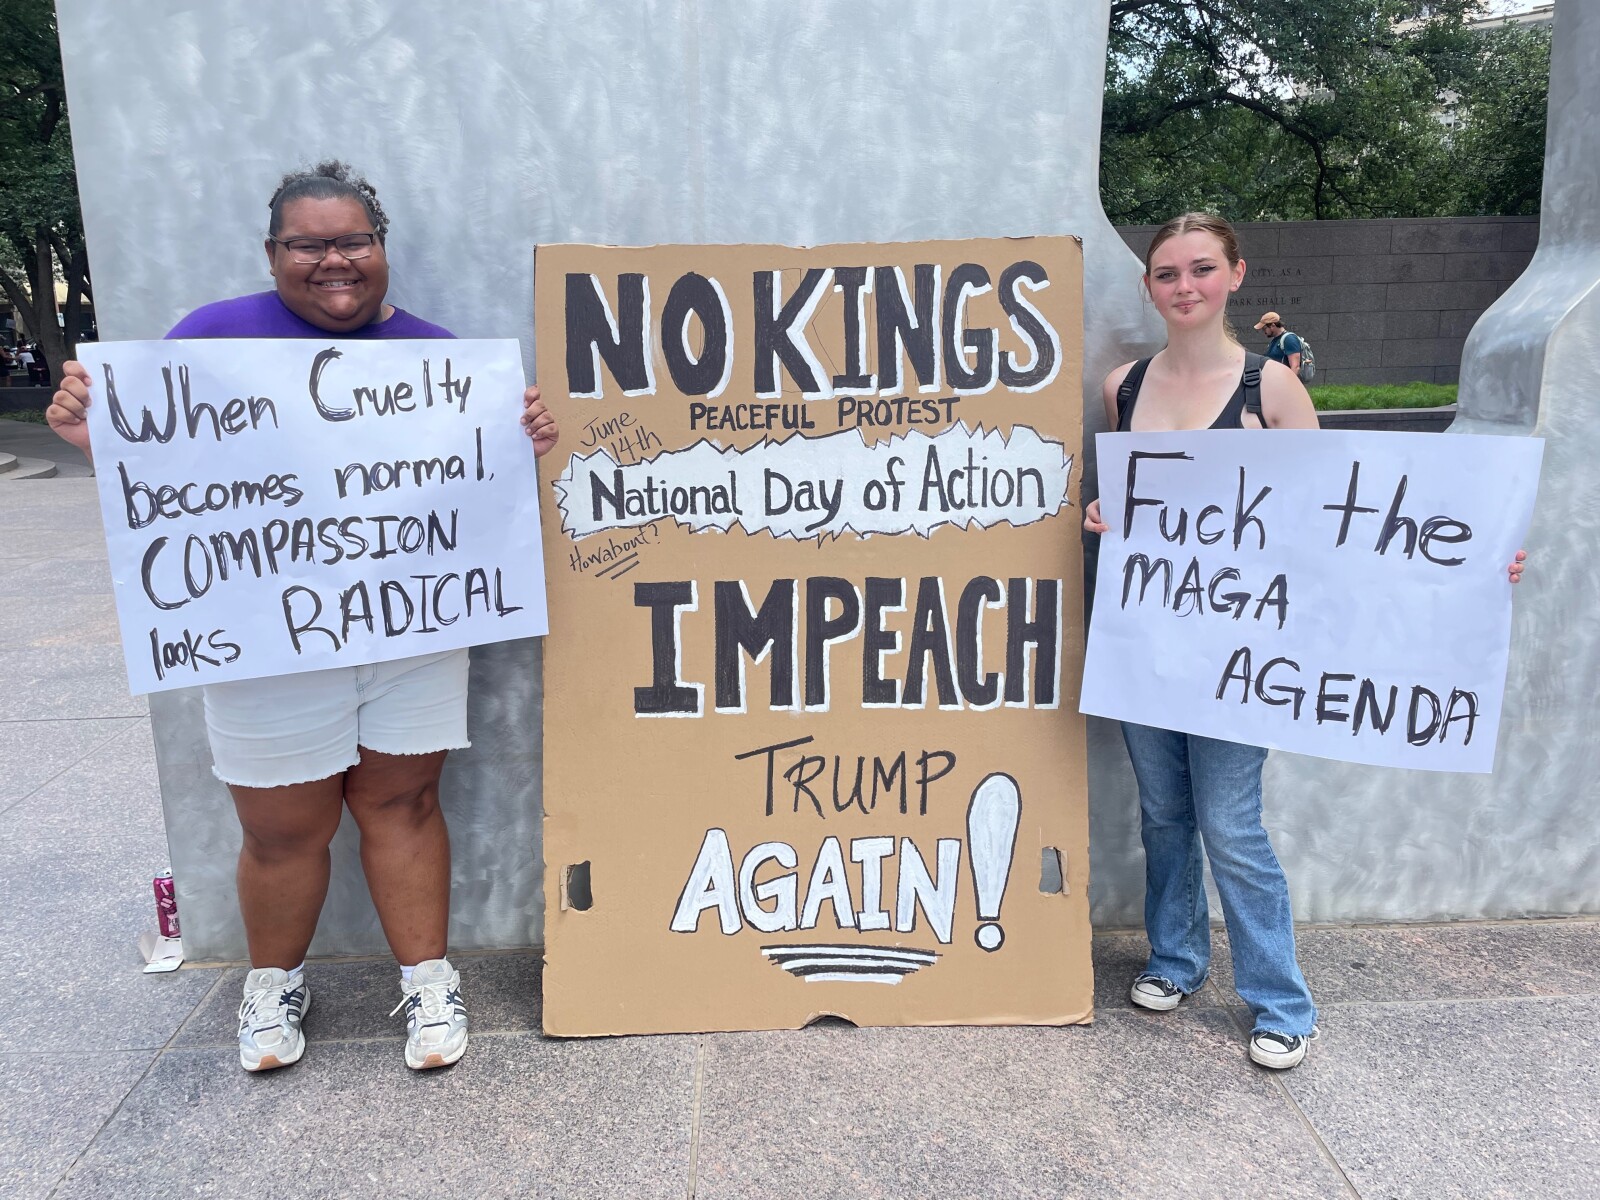 When Cruelty
becomes normal,
COMPASSION
looks RADICAL
NO KINGS
PEACEFUL PROTEST
June
14th
National Day of Action
How about?
IMPEACH
TRUMP
AGAIN!
Fuck the
MAGA
AGENDA
CITY, AS A
PARK SHALL BE